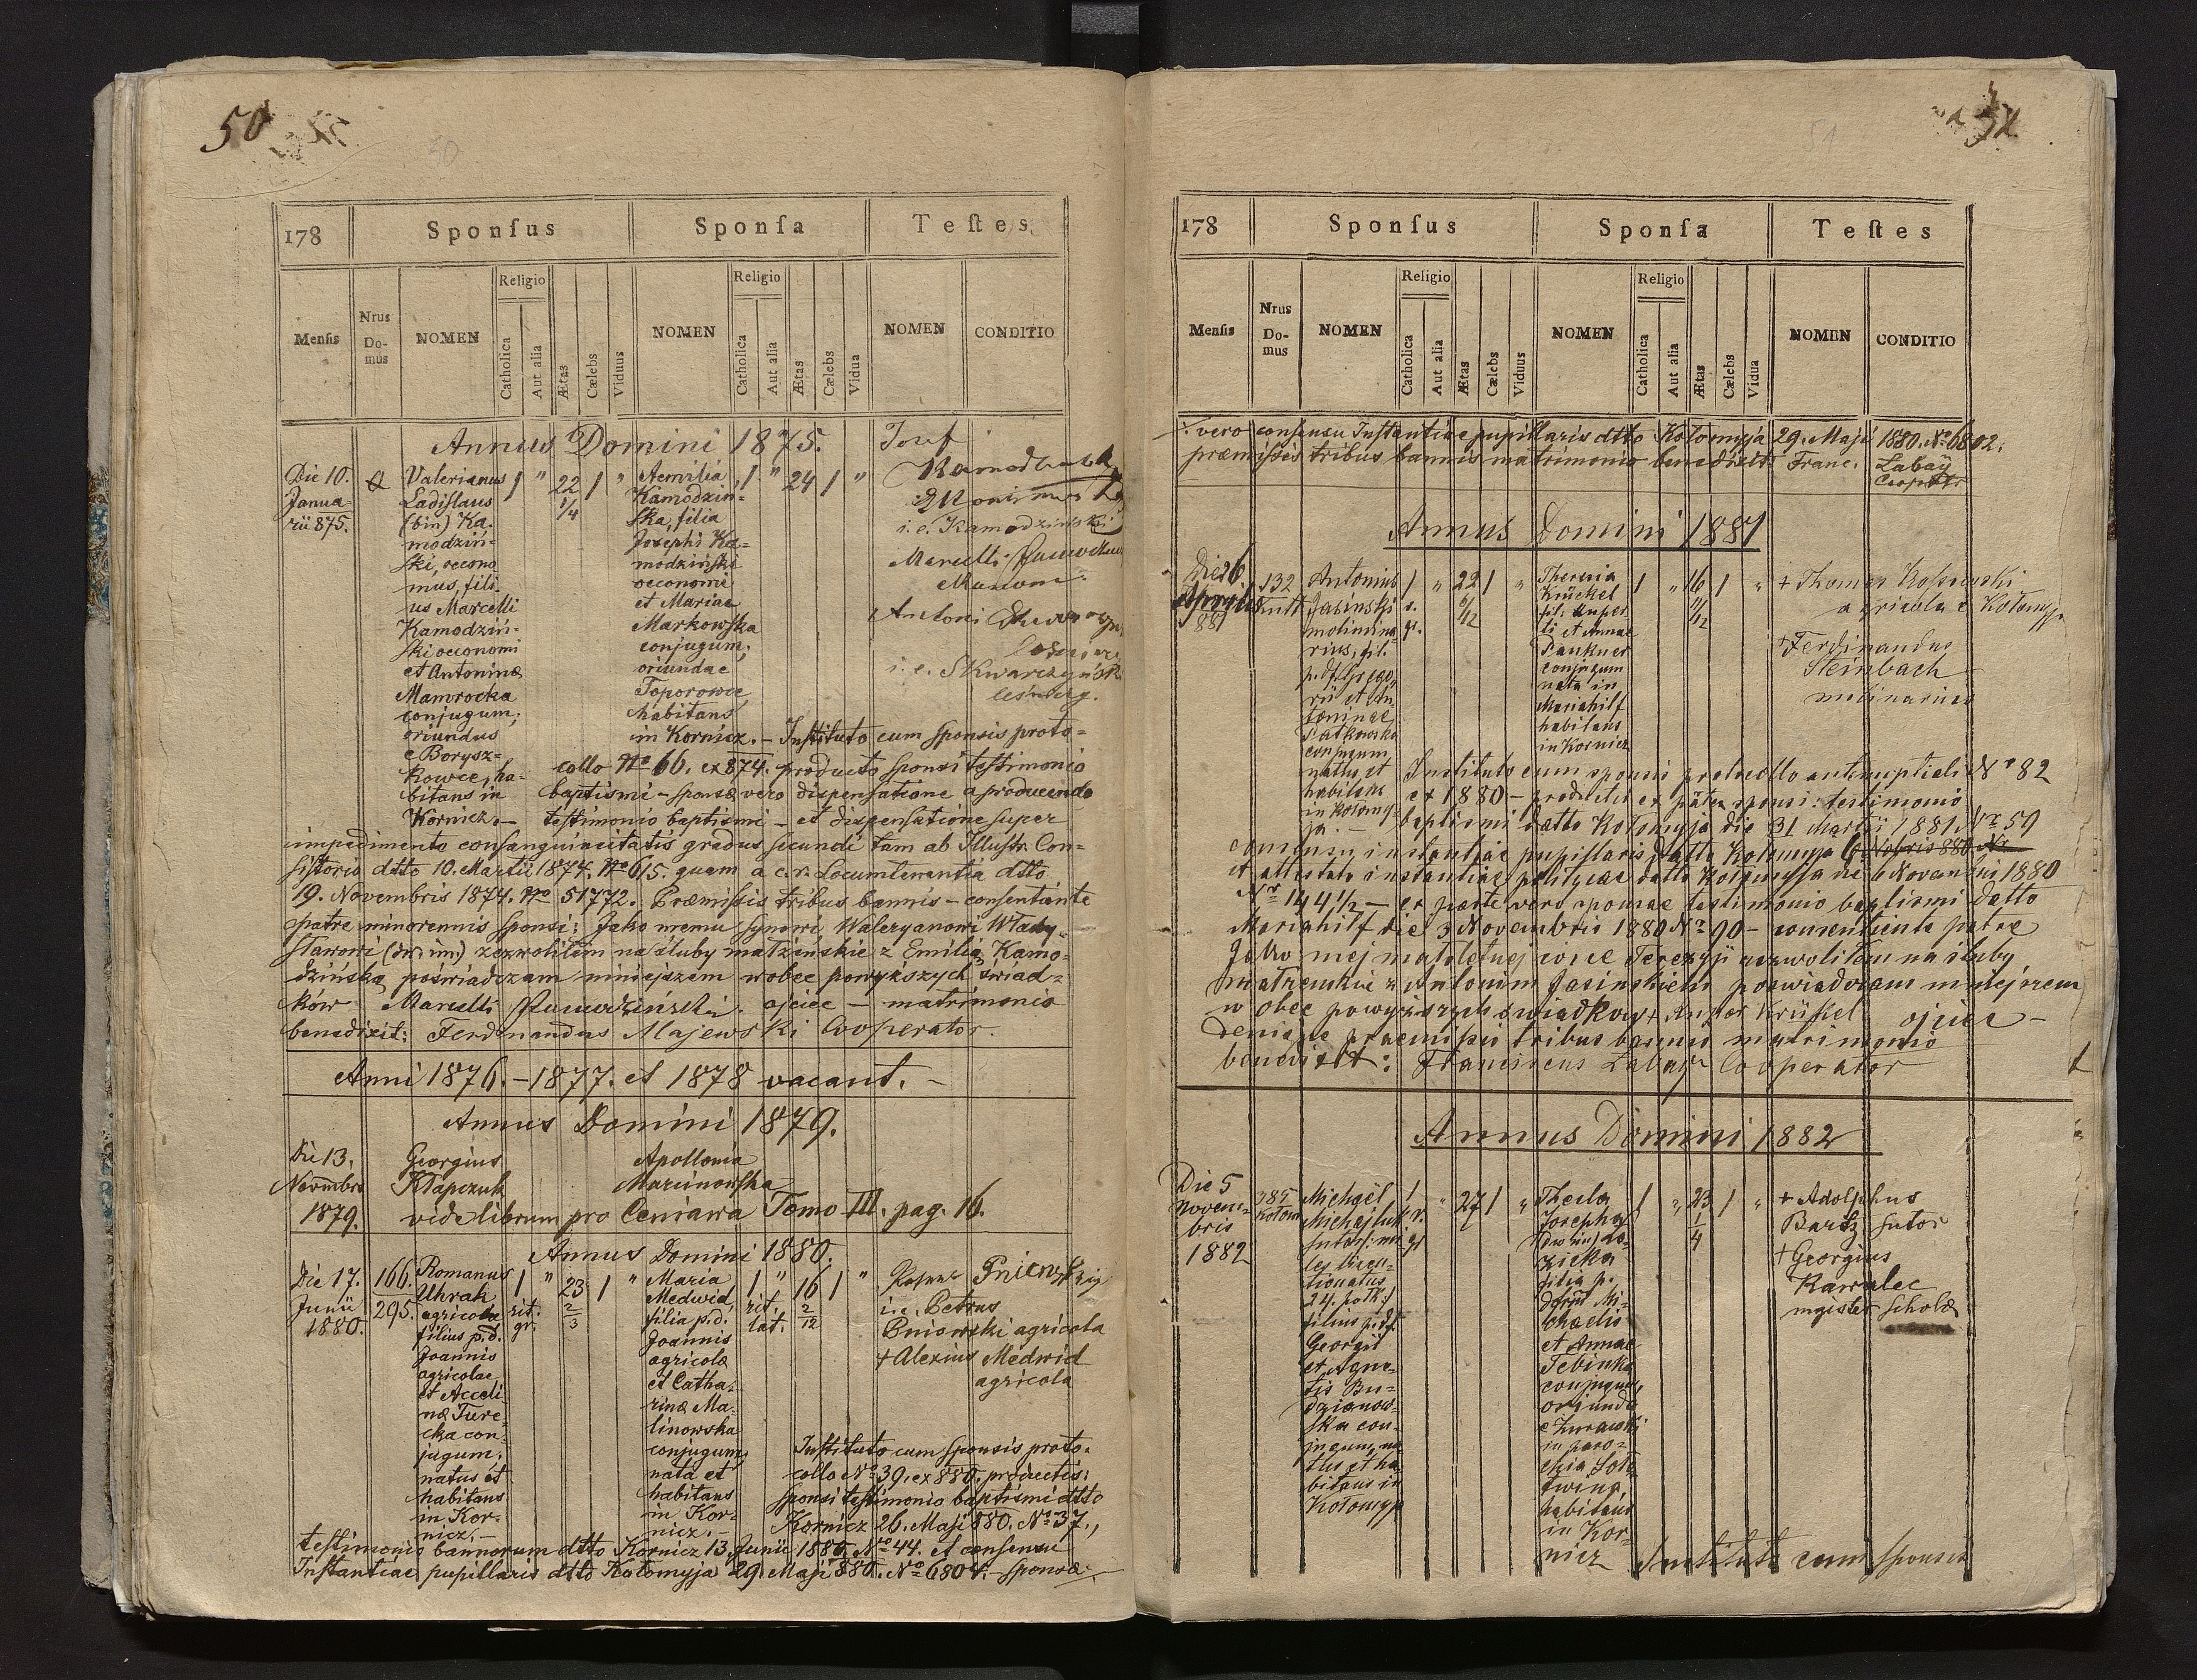 50
50
178
Sponſus
Sponſa
Teſtes
Menſis
Nrus Do-mus
NOMEN
Religio
Catholica
Aut alia
Ætas
Cælebs
Viduus
NOMEN
Religio
Catholica
Aut alia
Ætas
Cælebs
Vidua
NOMEN
CONDITIO
Annus Domini 1875.
Die 10.
Janua-
rii 875.
Valerianus
Ladislaus
(bin) Ka-
modziń-
ski, oecono
mus, fili-
us Marcelli
Kamodziń-
ski oeconomi
et Antoninæ
Mamrocka
conjugum;
oriundus
e Borysz-
kowce, ha-
bitans in
Kornicz.—
1 " 22 1/4 1 "
Aemilia
Kamodzin-
ska, filia
Josephi Ka-
modziński
oeconomi
et Mariae
Markowska
conjugum;
oriundae
Toporowce
habitans
in Kornicz.—
1 " 24 1 "
Józef
i. e. Kamodziński
Marcelli
Antoni
i. e. Skwarczyńsk
Instituto cum sponsis proto-
collo No 66. ex 874. producto sponsi testimonio
baptismi - sponsæ vero dispensatione a producendo
testimonio baptismi - et dispensatione super
impedimento consanguinitatis gradus secundi tam ab Illustr. Con-
sistorio dtto 10. Martii 1874. No 615. quam a c.r. Locumtenentia dtto
19. Novembris 1874. No 51772. Præmissis tribus bannis - consentiente
patre minorennis sponsi: Jako memu synowi Waleryanowi Włady-
sławowi (dw. im.) zezwoliłem na śluby małżeńskie z Emilią Kamo-
dzińską poświadczam niniejszem wobec powyższych świad-
ków Marcelli Kamodziński ojciec - matrimonio
benedixit: Ferdinandus Majewski Cooperator.
Anni 1876. - 1877. et 1878 vacant. -
Annus Domini 1879.
Die 13.
Novembris
1879.
Georgius
Kłapczuk
Apollonia
Marcinowska
vide librum pro Ceniawa Tomo III. pag. 16.
Annus Domini 1880.
Die 17.
Junii
1880.
166.
295.
Romanus
Uhrak
agricola
filius p.d.
Joannis
agricolae
et Acceli-
næ Ture-
cka con-
jugum;
natus et
habitans
in Kor-
nicz.—
1 rit. gr. " 23 2/3 1 "
Maria
Medwid,
filia p.d.
Joannis
agricolæ
et Catha-
rinæ Ma-
linowska
conjugum;
nata et
habitans
in Kor-
nicz.—
1 rit. lat. " 16 2/12 1 "
i.e. Petrus
Pniowski agricola
+ Alexius Medwid
agricola
Instituto cum sponsis proto-
collo No 39. ex 880. productis:
sponsi testimonio baptismi dtto
Kornicz 26. Maji 880. No 37.,
testimonio bannorum dtto Kornicz 13 Junii 1880. No 44. et consensu
Instantiae pupillaris dtto Kołomyja 29. Maji 880. No 6804. sponsæ
51
178
Sponſus
Sponſa
Teſtes
Menſis
Nrus Do-mus
NOMEN
Religio
Catholica
Aut alia
Ætas
Cælebs
Viduus
NOMEN
Religio
Catholica
Aut alia
Ætas
Cælebs
Vidua
NOMEN
CONDITIO
vero consensu Instantiae pupillaris dtto Kołomyja 29. Maji 1880. No 6802.
præmissis tribus bannis matrimonio benedixit: Franc. Łabaÿ
Cooperator
Annus Domini 1881
Die 6
Aprylis
881
132
Antonius
Jasinski
molinina-
rius, fil.
p.d. Grego-
rii et An-
toninae
Patkowska
conjugum
natus et
habitans
in Kołomy-
ja.—
1 r. gr. " 22 1 "
Theresia
Krückel
fil. Ruper
ti et Annae
Paukner
conjugum
nata in
Mariahilf
habitans
in Kornicz
1 " 16 11/12 1 "
+ Thomas Kossowski
agricola e Kołomyja
+ Ferdinandus
Steinbach
molinarius
Instituto cum sponsis protocollo antenuptiali No 82
ex 1880 - productis ex parte sponsi: testimonio
baptismi datto Kołomyja die 31 Martii 1881. No 59
consensu instantiae pupillaris datto Kołomyja 6 Nobris 880 No
et attestato instantiae polityczae datto Kołomyja die 6 Novembri 1880
No 144 1/2 - ex parte vero sponsae testimonio baptismi datto
Mariahilf die 3 Novembris 1880 No 90 - consentiente patre
Jako mej małoletniej córce Terezyji zezwoliłem na śluby
małżenskie z Antonim Jasinskiem poswiadczam niniejszem
w obec powyższych swiadkow + Krükel ojciec -
Denique praemissis tribus bannis matrimonio
benedixit: Franciscus Łabaÿ Cooperator
Annus Domini 1882
Die 5
Novem-
bris
1882
785
Kołom
Michael
Michajluk
filius p.d.
Georgii
et Agne-
tis Bu-
dzianow-
ska con-
jugum, na
tus et ha-
bitans in
Kołomyja
1 r. gr " 27 1 "
Thecla
Josepha
(dw im) Ło-
zicka
filia p.
def. Mi-
chaelis
et Annae
Tebinka
conjugum,
oriunda
e Zurawki
in paro-
chia Soło
twina,
habitans
in Kor-
nicz
1 " 23 1/4 1 "
+ Adolphus
Bartz sutor
+ Georgius
Kawalec
magister scholæ
Instituto cum sponsis